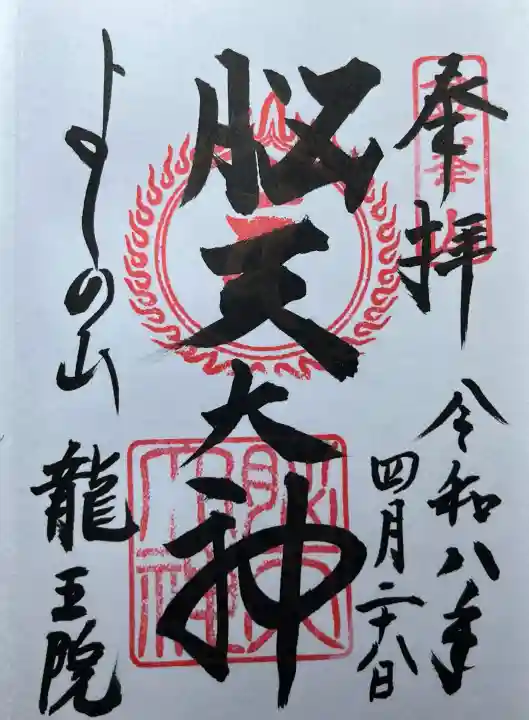 奉拝
令和八年
四月二十八日
脳天大神
よしの山
龍王院